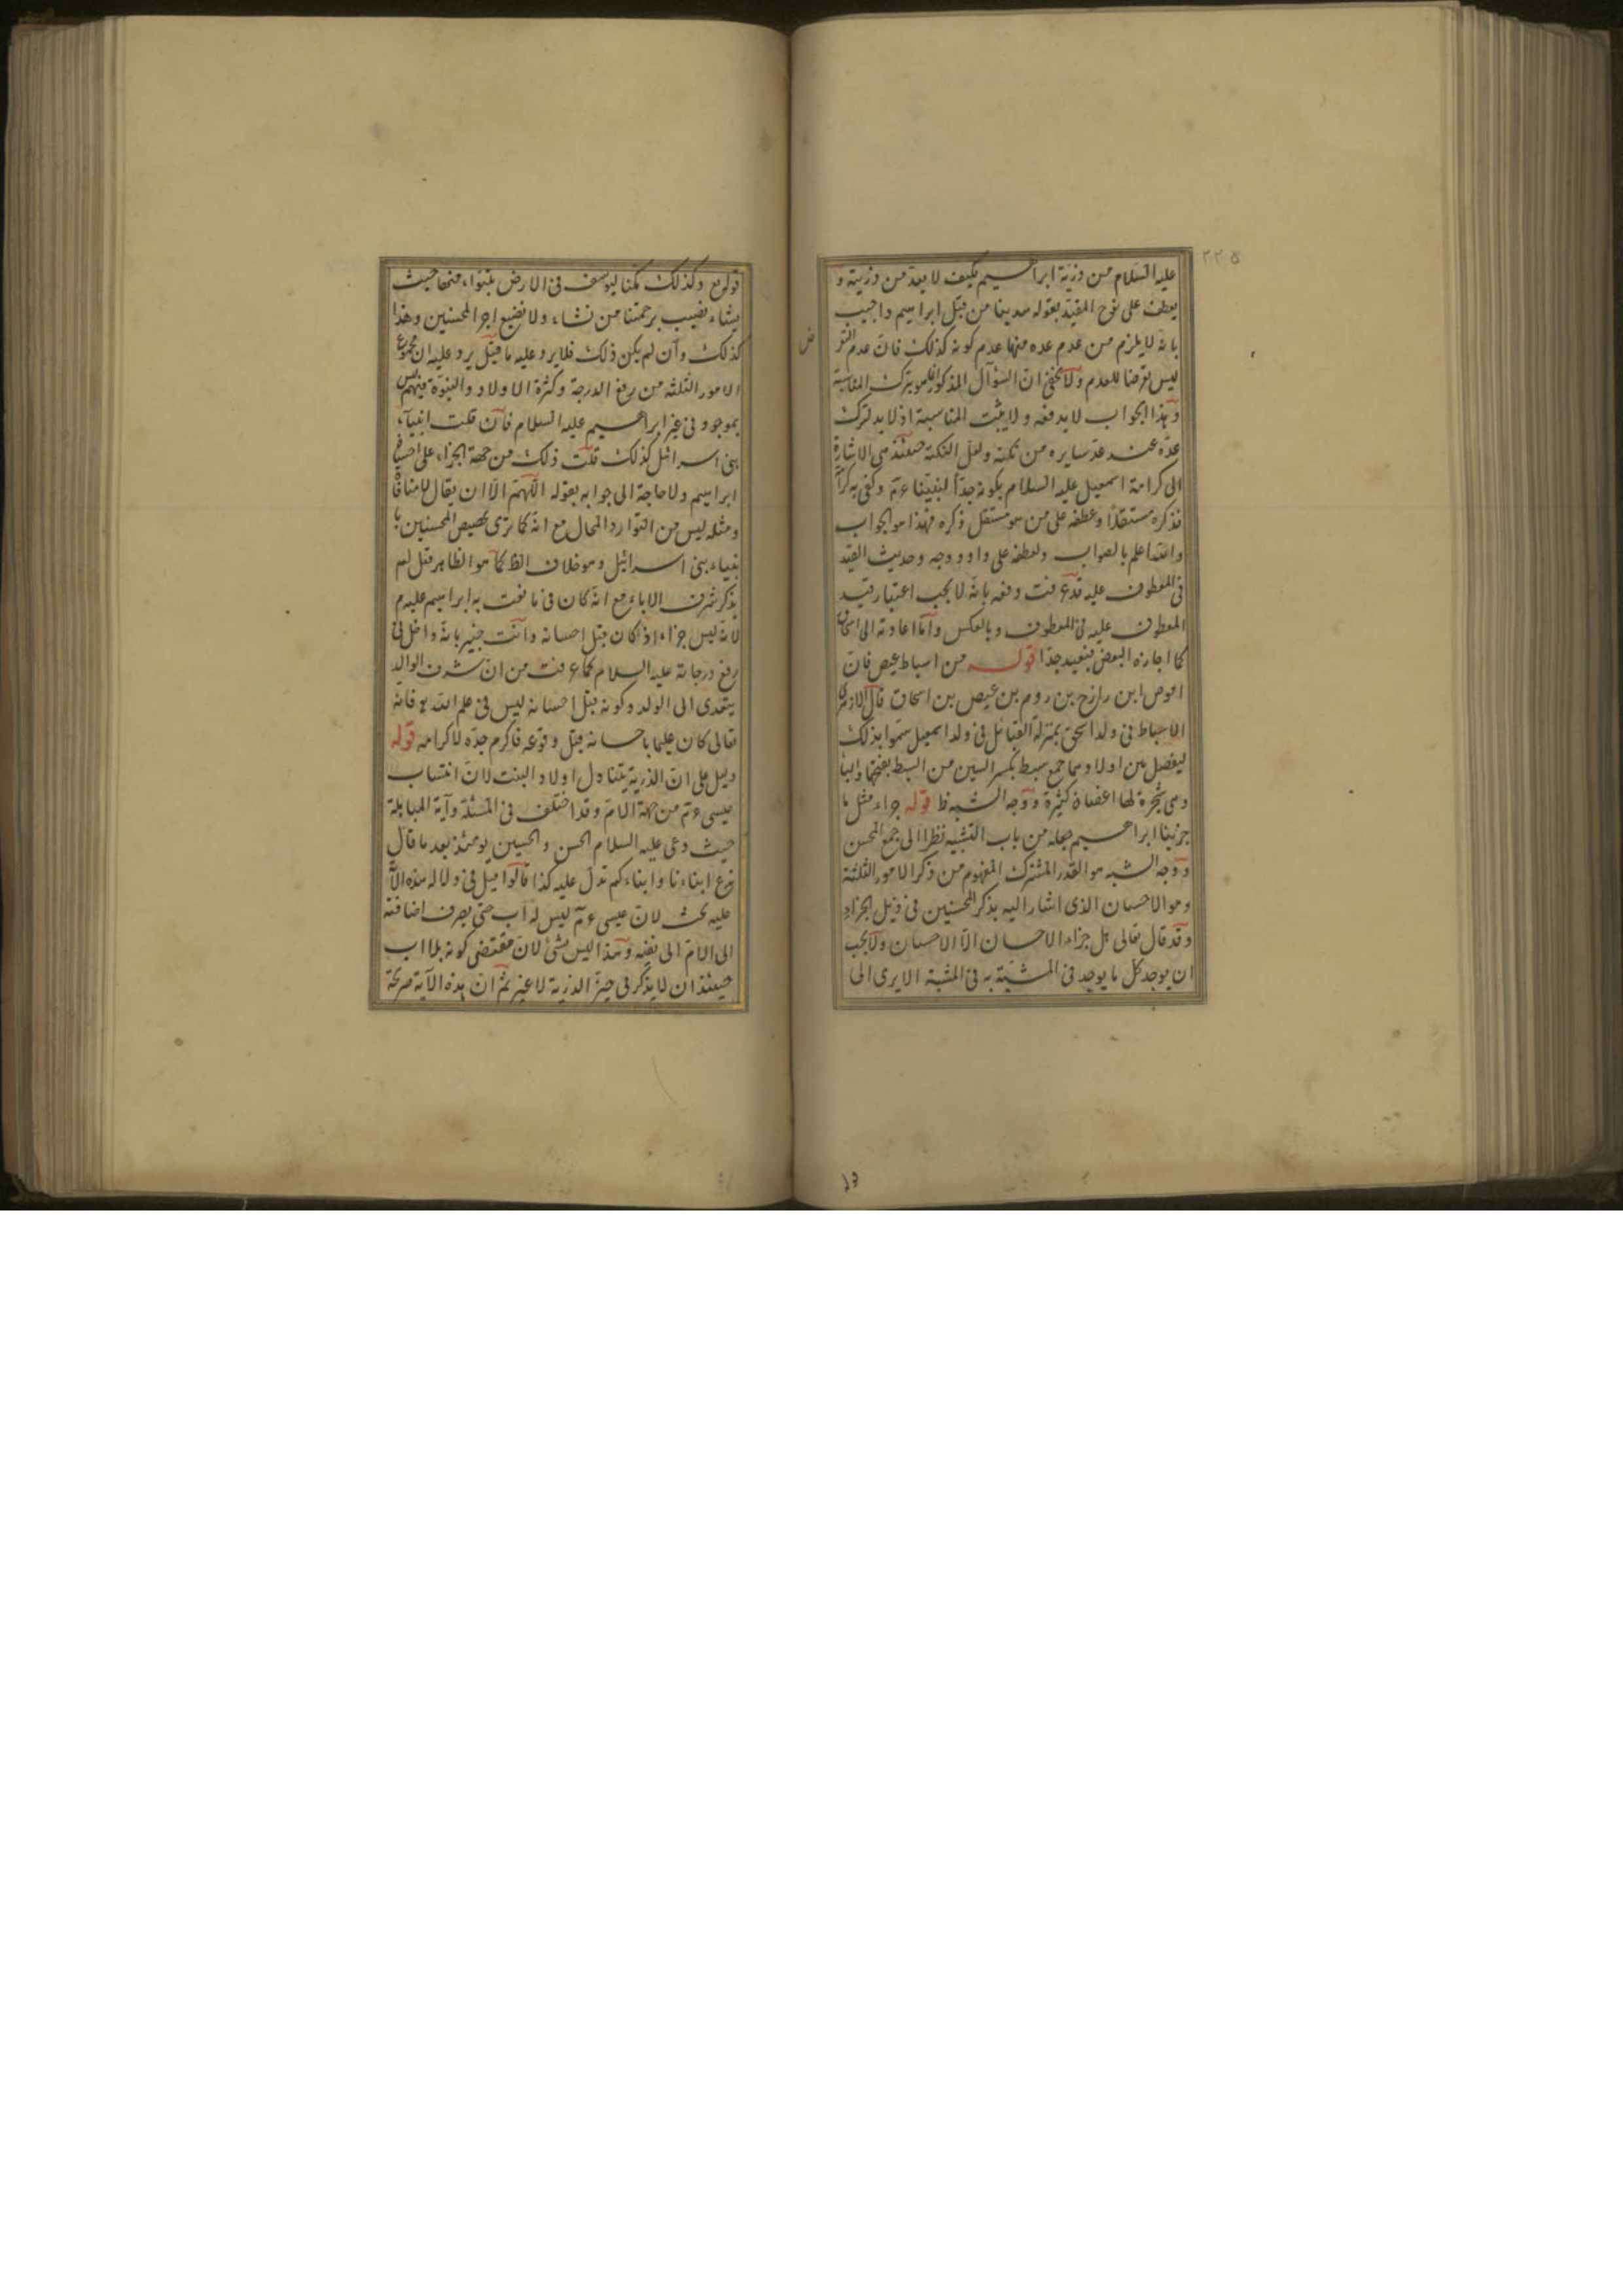 ٢٢٥
عليه السلام من ذرية ابراهيم فكيف لا يعد من ذريته و
يعطف على نوح المقيد بقوله هدينا من قبل ابراهيم واجيب
بانه لا يلزم من عدم عده منها عدم كونه كذلك فان عدم التعر
ض
ليس تعرضا للعدم ولا يخفى ان السؤال المذكور هو بترك المناسبة
وهذا الجواب لا يدفعه ولا يثبت المناسبة اذ لا بد لترك
عده عند عد سايره من نكتة ولعل النكتة حينئذ هى الاشارة
الى كرامة اسمعيل عليه السلام بكونه جدا لنبينا عم وكفى به كرامة
فذكره مستقلا وعطفه على من هو مستقل ذكره فهذا هو الجواب
والله اعلم بالصواب ولعطفه على داود وجه وحديث القيد
فى المعطوف عليه قد عرفت دفعه بانه لا يجب اعتبار قيد
المعطوف عليه فى المعطوف وبالعكس واما اعادته الى اسحاق
كما اجازه البعض فبعيد جدا قوله من اسباط عيص فان
اموص ابن رازح بن روم بن عيص بن اسحاق قال الازهرى
الاسباط فى ولد اسحق بمنزلة القبائل فى ولد اسمعيل سموا بذلك
ليفصل بين اولادهما جمع سبط بكسر السين من السبط بفتحها والبا
وهى شجرة لها اغصان كثيرة ووجه الشبه ظ قوله جزاء مثل ما
جزينا ابراهيم جعله من باب التشبيه نظرا الى جمع المحسن
ووجه الشبه هو القدر المشترك المفهوم من ذكر الامور الثلثة
وهو الاحسان الذى اشار اليه بذكر المحسنين فى ذيل الجزاء
وقد قال تعالى هل جزاء الاحسان الا الاحسان ولا يجب
ان يوجد كل ما يوجد فى المشبه به فى المشبه الا يرى الى
قوله تع وكذلك مكنا ليوسف فى الارض يتبوا منها حيث
يشاء نصيب برحمتنا من نشاء ولا نضيع اجر المحسنين وهذا
كذلك وان لم يكن ذلك فلا يرد عليه ما قيل يرد عليه ان مجموع
الامور الثلثه من رفع الدرجة وكثرة الاولاد والنبوة فيهم ليس
بموجود فى غير ابراهيم عليه السلام فان قلت انبياء
بنى اسرائل كذلك قلت ذلك من جهة الجزاء على احسان
ابراهيم ولا حاجة الى جوابه بقوله اللهم الا ان يقال لا منافاة
ومثله ليس من التوارد المحال مع انه كما ترى تخصيص المحسنين با
نبياء بنى اسرائيل وهو خلاف الظ كما هو الظاهر قيل لم
يذكر شرف الاباء مع انه كان فى ما نعت به ابراهيم عليه م
لانه ليس جزاء اذ كان قبل احسانه وانت خبير بانه داخل فى
رفع درجاته عليه السلام كما عرفت من ان شرف الوالد
يتعدى الى الولد وكونه قبل احسانه ليس فى علم الله فانه
تعالى كان عليما باحسانه قبل وقوعه فاكرم جده لاكرامه قوله
دليل على ان الذرية يتناول اولاد البنت لان انتساب
عيسى عم من جهة الام وقد اختلف فى المسئلة وآية المباهلة
حيث دعى عليه السلام الحسن والحسين يومئذ بعد ما قال
ندع ابناءنا وابناءكم تدل عليه كذا قالوا قيل فى دلالة هذه الآ
عليه بحث لان عيسى عم ليس له اب حتى يصرف اضافته
الى الام الى نفيه وهذا ليس بشئ لان مقتضى كونه بلا اب
حينئذ ان لا يذكر فى حيز الذرية لا غير ثم ان هذه الآية صريحة